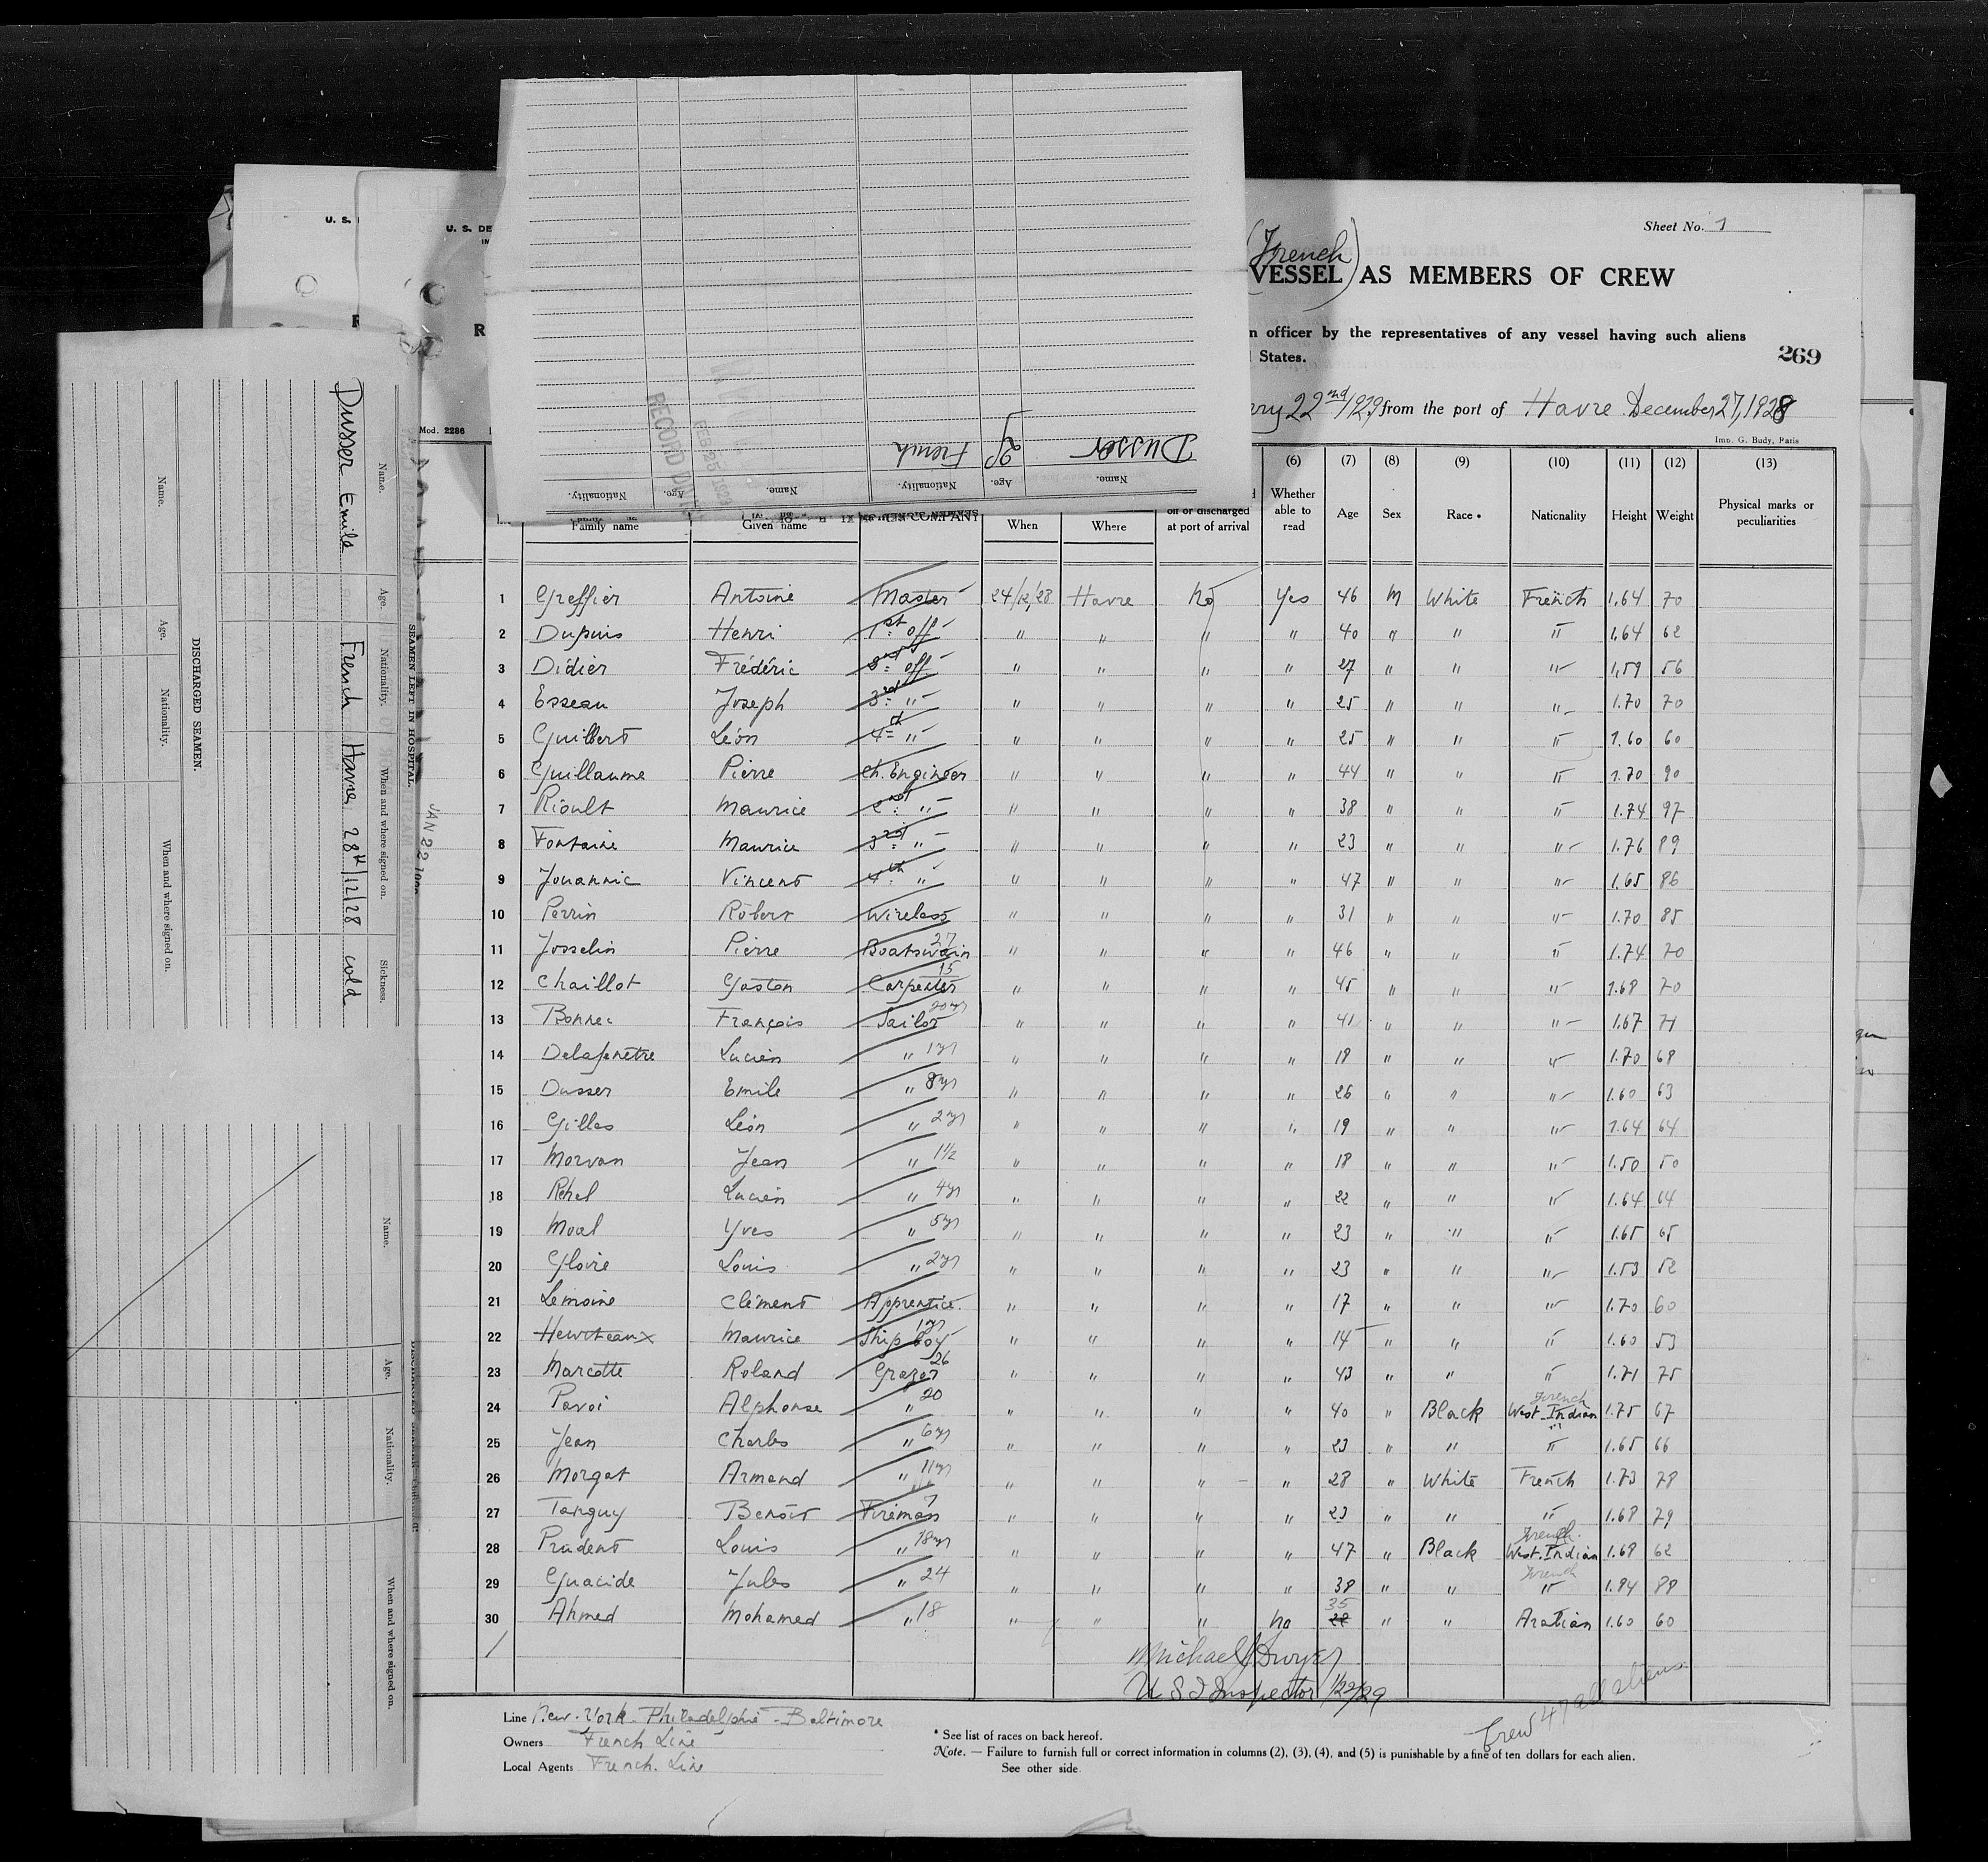 Sheet No. 1
(French)
VESSEL) AS MEMBERS OF CREW
officer by the representatives of any vessel having such aliens
States.
269
22nd 1929 from the port of Havre December 27, 1928
Imp. G. Budy, Paris
U. S.
U. S. DE
Mod. 2286
Dusser 29 French
Name. Age. Nationality. Name. Age. Nationality.
FEB 25 1929
RECORD DIV
(6) (7) (8) (9) (10) (11) (12) (13)
Family name Given name When Where on or discharged at port of arrival Whether able to read Age Sex Race • Nationality Height Weight Physical marks or peculiarities
1 Greffier Antoine Master 24/12/28 Havre No Yes 46 M White French 1.64 70
2 Dupuis Henri 1st off " " " " 40 " " " 1,64 62
3 Didier Frédéric 2nd off " " " " 27 " " " 1,59 56
4 Esseau Joseph 3rd " " " " " 25 " " " 1.70 70
5 Guilbert Léon 4th " " " " " 25 " " " 1.60 60
6 Guillaume Pierre Ch. Engineer " " " " 44 " " " 1.70 90
7 Rioult Maurice 2nd " " " " " 38 " " " 1.74 97
8 Fontaine Maurice 3rd " " " " " 23 " " " 1.76 89
9 Jouannic Vincent 4th " " " " " 47 " " " 1.65 86
10 Perrin Robert Wireless " " " " 31 " " " 1.70 85
11 Josselin Pierre Boatswain 27 " " " " 46 " " " 1.74 70
12 Chaillot Gaston Carpenter 15 " " " " 45 " " " 1.68 70
13 Bonnec François Sailor 20 yrs " " " " 41 " " " 1.67 71
14 Delafenêtre Lucien " 1 yr " " " " 18 " " " 1.70 68
15 Dusser Emile " 8 yrs " " " " 26 " " " 1.60 63
16 Gilles Léon " 2 yrs " " " " 19 " " " 1.64 64
17 Morvan Jean " 1 1/2 " " " " 18 " " " 1.50 50
18 Rehel Lucien " 4 yrs " " " " 22 " " " 1.64 64
19 Moal Yves " 5 yrs " " " " 23 " " " 1.65 65
20 Gloire Louis " 2 yrs " " " " 23 " " " 1.53 52
21 Lemoine Clément Apprentice " " " " 17 " " " 1.70 60
22 Maurice Ship boy 1 yr " " " " 14 " " " 1.60 53
23 Marcotte Roland Greaser 26 " " " " 43 " " " 1.71 75
24 Pavoi Alphonse " 20 " " " " 40 " Black French West-Indian 1.75 67
25 Jean Charles " 6 yrs " " " " 23 " " " 1.65 66
26 Morgat Armand " 11 yrs " " " " 28 " White French 1.73 78
27 Tanguy Benoit Fireman 7 " " " " 23 " " " 1.68 79
28 Prudent Louis " 18 yrs " " " " 47 " Black French West-Indian 1.68 62
29 Guacide Jules " 24 " " " " 38 " " French " 1.84 88
30 Ahmed Mohamed " 18 " " " No 35 28 " " Arabian 1.60 60
Michael J Dwyer
U S I Inspector 1/22/29
Crew 47 all aliens
Line New-York-Philadelphie-Baltimore
Owners French Line
Local Agents French Line
* See list of races on back hereof.
Note. — Failure to furnish full or correct information in columns (2), (3), (4), and (5) is punishable by a fine of ten dollars for each alien.
See other side.
SEAMEN LEFT IN HOSPITAL.
Name. Age. Nationality. When and where signed on. Sickness.
Dusser Emile French Havre 28th/12/28 cold
DISCHARGED SEAMEN.
Name. Age. Nationality. When and where signed on.
Name. Age. Nationality. When and where signed on.
JAN 22